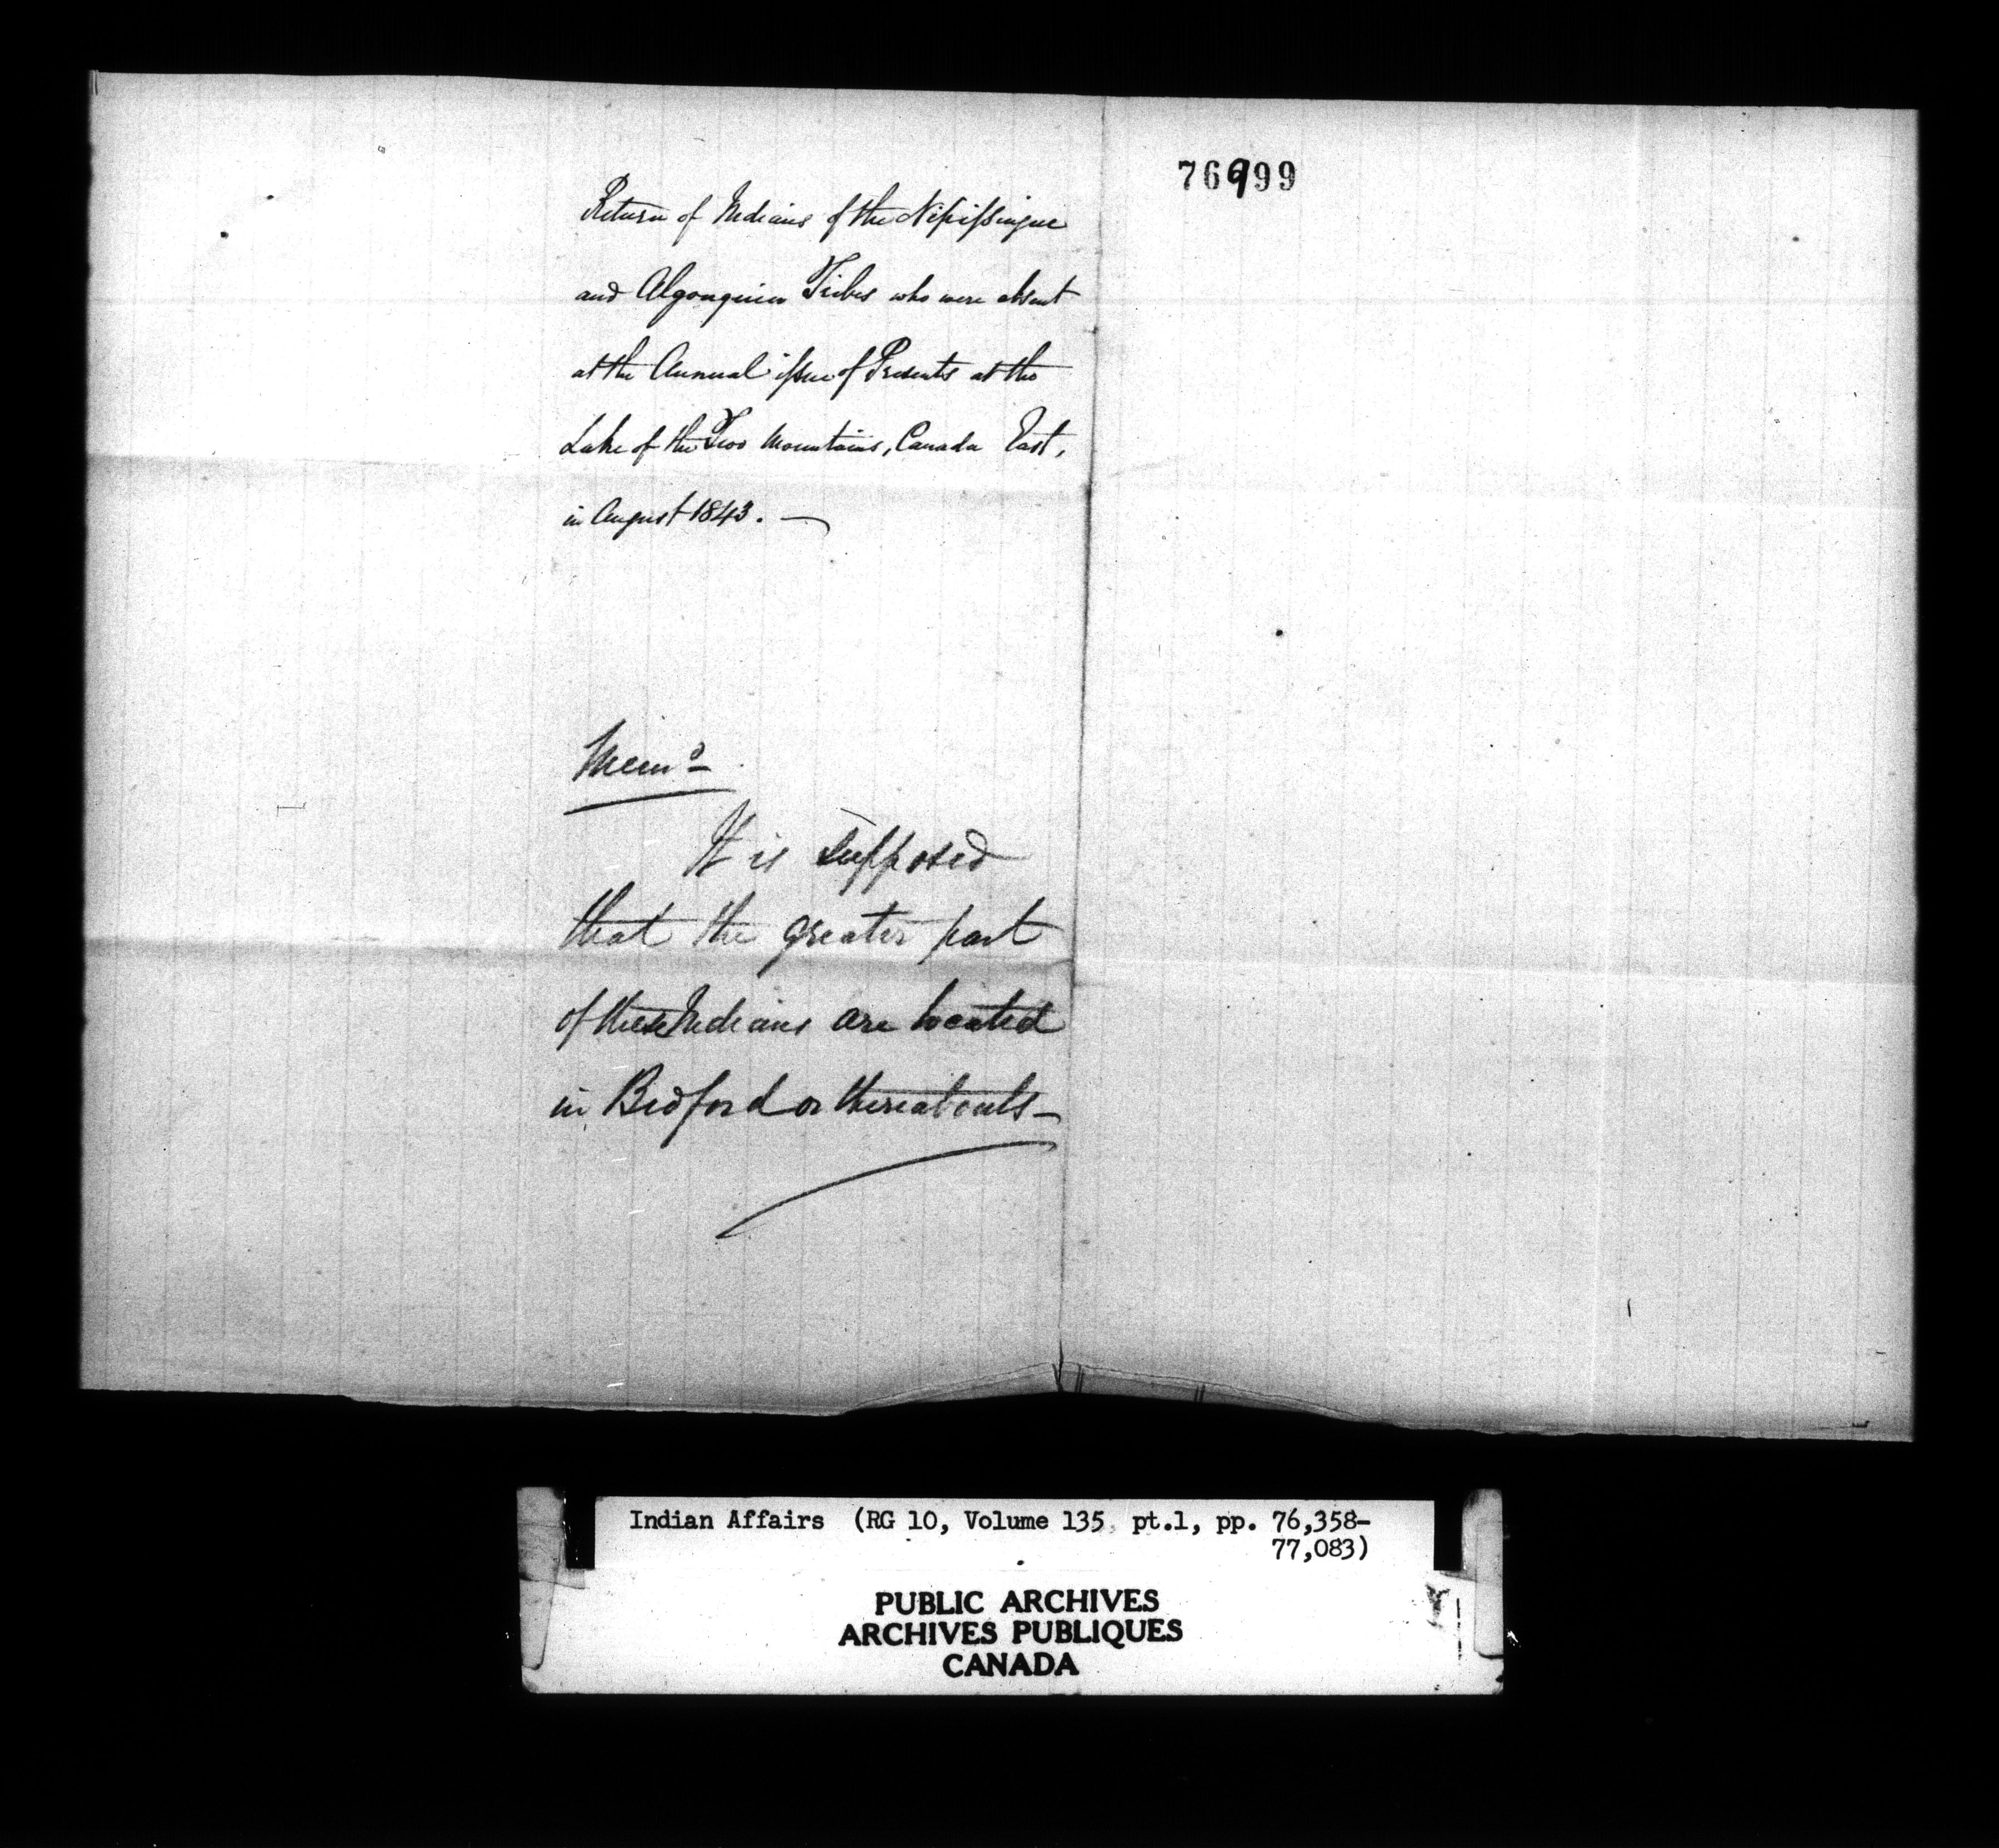 Return of Indians of the Nipissingue
and Algonquin Tribes who were absent
at the Annual issue of Presents at the
Lake of the Two Mountains, Canada East,
in August 1843. —
Memo
It is supposed
that the greater part
of these Indians are located
in Bedford or thereabouts —
76999
Indian Affairs (RG 10, Volume 135 pt.1, pp. 76,358-
77,083)
PUBLIC ARCHIVES
ARCHIVES PUBLIQUES
CANADA